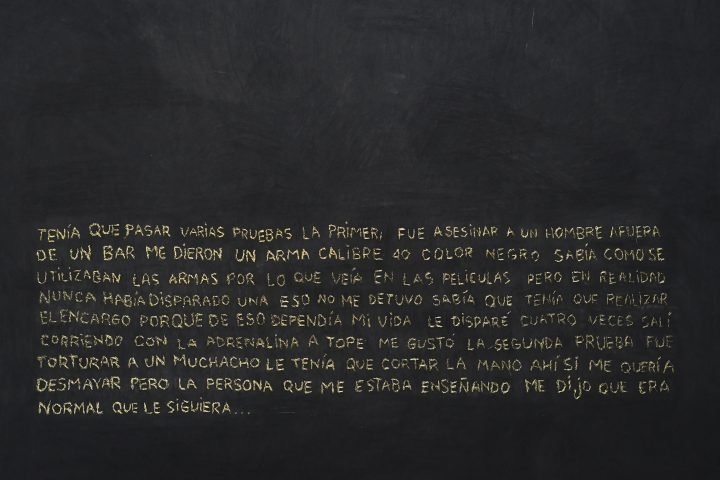 TENÍA QUE PASAR VARIAS PRUEBAS LA PRIMERA FUE ASESINAR A UN HOMBRE AFUERA
DE UN BAR ME DIERON UN ARMA CALIBRE 40 COLOR NEGRO SABÍA COMO SE
UTILIZABAN LAS ARMAS POR LO QUE VEÍA EN LAS PELÍCULAS PERO EN REALIDAD
NUNCA HABÍA DISPARADO UNA ESO NO ME DETUVO SABÍA QUE TENÍA QUE REALIZAR
EL ENCARGO PORQUE DE ESO DEPENDÍA MI VIDA LE DISPARÉ CUATRO VECES SALÍ
CORRIENDO CON LA ADRENALINA A TOPE ME GUSTÓ LA SEGUNDA PRUEBA FUE
TORTURAR A UN MUCHACHO LE TENÍA QUE CORTAR LA MANO AHÍ SÍ ME QUERÍA
DESMAYAR PERO LA PERSONA QUE ME ESTABA ENSEÑANDO ME DIJO QUE ERA
NORMAL QUE LE SIGUIERA...